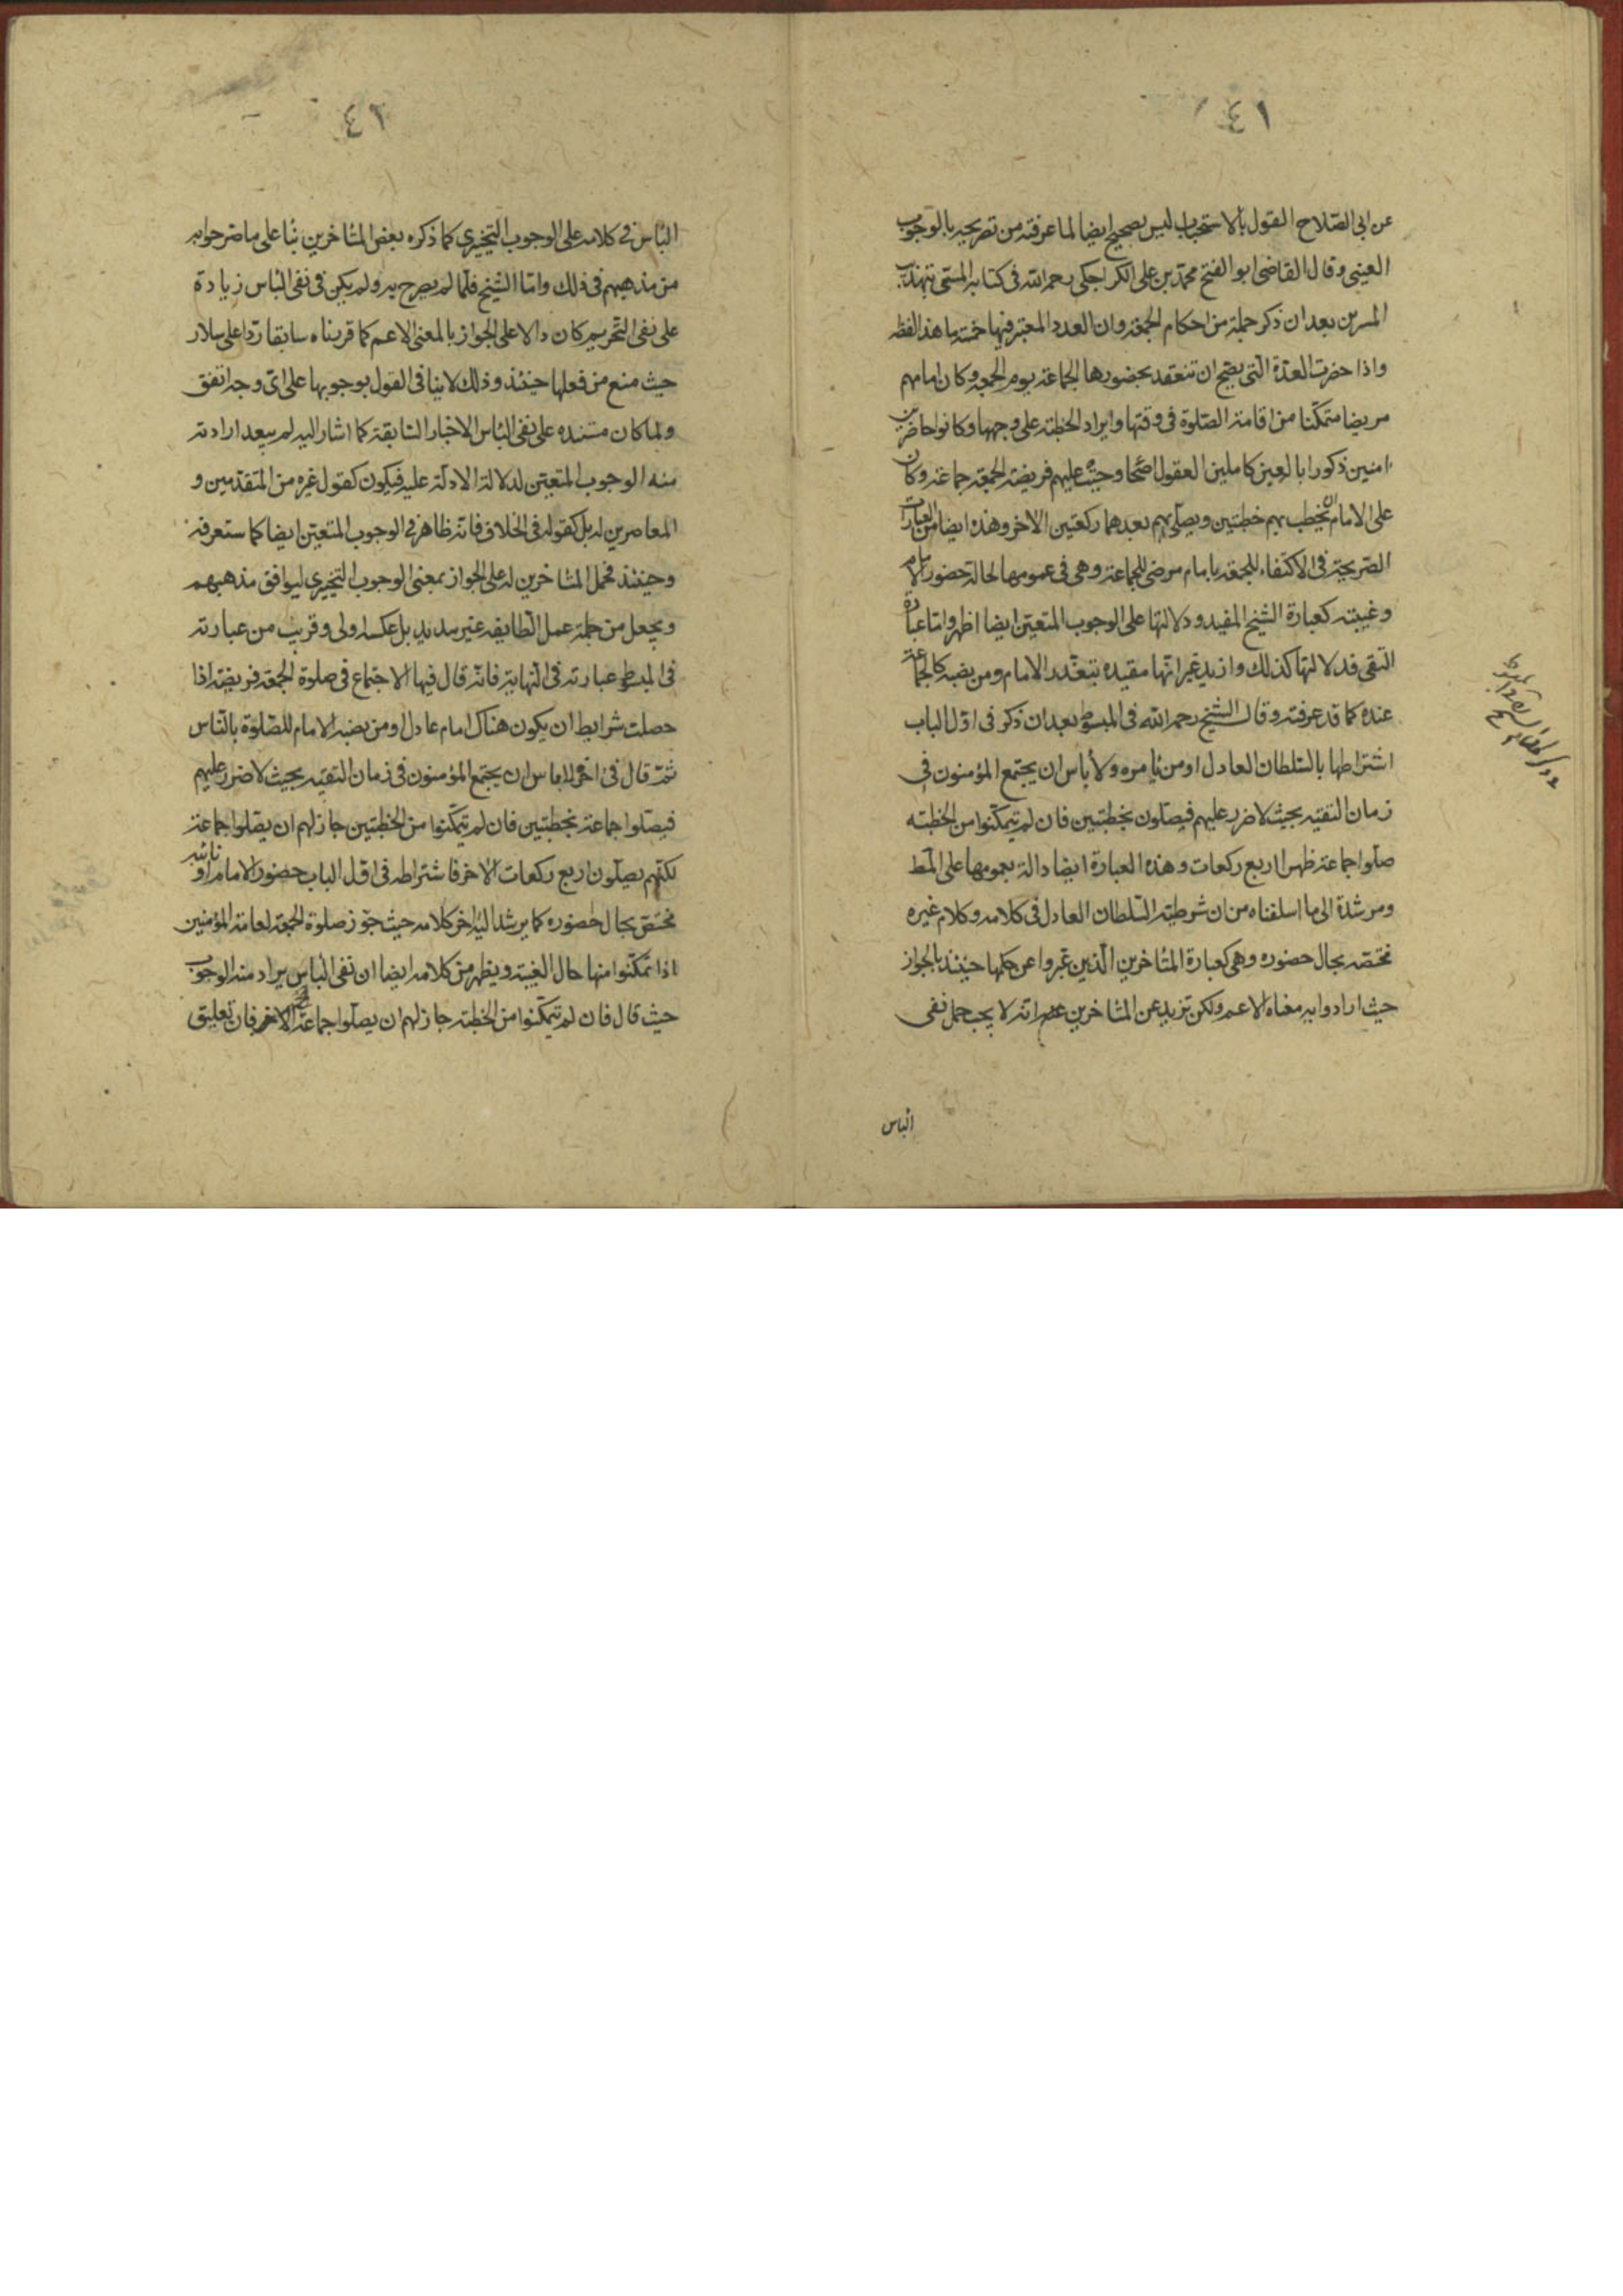 ٤١
عن ابى الصّلاح القول بالاستحباب ليس بصحيح ايضا لما عرفته من تصريحه بالوجوب
العينى وقال القاضى ابو الفتح محمّد بن على الكراجكى رحمه الله فى كتابه المسمّى بتهذيب
المسرين بعد ان ذكر جملة من احكام الجمعة وان العدد المعتبر فيها خمسة ما هذا لفظه
واذا حضرت العدّة الّتى يصحّ ان تنعقد بحضورها الجماعة يوم الجمعه وكان امامهم
مرضيا متمكّنا من اقامة الصّلوة فى وقتها وايراد الخطبة على وجهها وكانوا حاضرين
امنين ذكورا بالغين كاملين العقول اصحّا وجبت عليهم فريضة الجمعة جماعة وكان
على الامام ان يخطب بهم خطبتين ويصلّى بهم بعدهما ركعتين الاخر وهذه ايضا من العبارات
الصّريحة فى الاكتفاء للجمعة بامام مرضى للجماعة وهى فى عمومها لحالة حضور الامام
وغيبته كعبارة الشيخ المفيد ودلالتها على الوجوب المتعيّن ايضا اظهر وامّا عبارة
التقى فدلالتها كذلك وازيد غير انّها مقيده بتعذّر الامام ومن نصبه كالجماعة
عنده كما قد عرفته وقال الشيخ رحمه الله فى المبسوط بعد ان ذكر فى اوّل الباب
اشتراطها بالسّلطان العادل او من يأمره ولا بأس ان يجتمع المؤمنون فى
زمان التقيّه بحيث لا ضرر عليهم فيصلّون بخطبتين فان لم يتمكّنوا من الخطبته
صلّوا جماعة ظهرا اربع ركعات وهذه العبارة ايضا دالة بعمومها على المط
ومرشدة الى ما اسلفناه من ان شرطية السّلطان العادل فى كلامه وكلام غيره
مختصّه بحال حضوره وهى كعبارة المتاخرين الّذين عبّروا عن حكمها حينئذ بالجواز
حيث ارادوا به معناه الاعم ولكن تزيد عن المتاخرين انه لا يجب حمل نفى
الباس
٤٢
الباس فى كلامه على الوجوب التخييرى كما ذكره بعض المتاخرين بنا على ما صرحوا به
من مذهبهم فى ذلك وامّا الشيخ فلمّا لم يصرح به ولم يكن فى نفى الباس زيادة
على نفى التحريم كان دالا على الجواز بالمعنى الاعم كما قربناه سابقا ردّا على سلار
حيث منع من فعلها حينئذ وذلك لا ينافى القول بوجوبها على اى وجه اتفق
ولما كان مستنده على نفى الباس الاخبار السّابقة كما اشار اليه لم يبعد ارادته
منه الوجوب المتعيّن لدلالة الادلّة عليه فيكون كقول غيره من المتقدّمين و
المعاصرين له بل كقوله فى الخلاف فانّه ظاهر فى الوجوب المتعيّن ايضا كما ستعرفه
وحينئذ فحمل المتاخرين له على الجواز بمعنى الوجوب التخييرى ليوافق مذهبهم
ويجعل من جملة عمل الطّايفه غير سديد بل عكسه اولى وقريب من عبارته
فى المبسوط عبارته فى النّهاية فانّه قال فيها الاجتماع فى صلوة الجمعة فريضة اذا
حصلت شرايطه ان يكون هناك امام عادل او من نصبه الامام للصّلوة بالنّاس
ثمّ قال فى اخره لا باس ان يجتمع المؤمنون فى زمان التقيّه بحيث لا ضرر عليهم
فيصلّوا جماعة بخطبتين فان لم يتمكّنوا من الخطبتين جاز لهم ان يصلّوا جماعة
لكنّهم يصلّون اربع ركعات الاخر فاشتراطه فى اوّل الباب حضور الامام او نائبه
مختصّ بحال حضوره كما يرشد اليه اخر كلامه حيث جوّز صلوة الجمعة لعامة المؤمنين
اذا تمكّنوا منها حال الغيبة ويظهر من كلامه ايضا ان نفى الباس يراد منه الوجوب
حيث قال فان لم يتمكّنوا من الخطبة جاز لهم ان يصلّوا جماعة الاخر فان تعليق